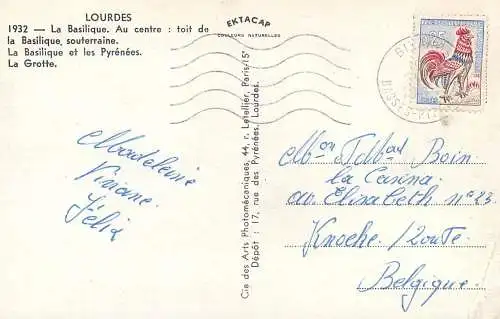 LOURDES
1932 — La Basilique. Au centre : toit de
la Basilique souterraine.
La Basilique et les Pyrénées.
La Grotte.
EKTACAP
COULEURS NATURELLES
Cie des Arts Photomécaniques, 44, r. Letellier, Paris-15e
Dépôt : 17, rue des Pyrénées, Lourdes.
Madeleine
Viviane
Félix
Mon
Boin
La Casina
av. Elisabeth n° 23
Knocke / Zoute.
Belgique.